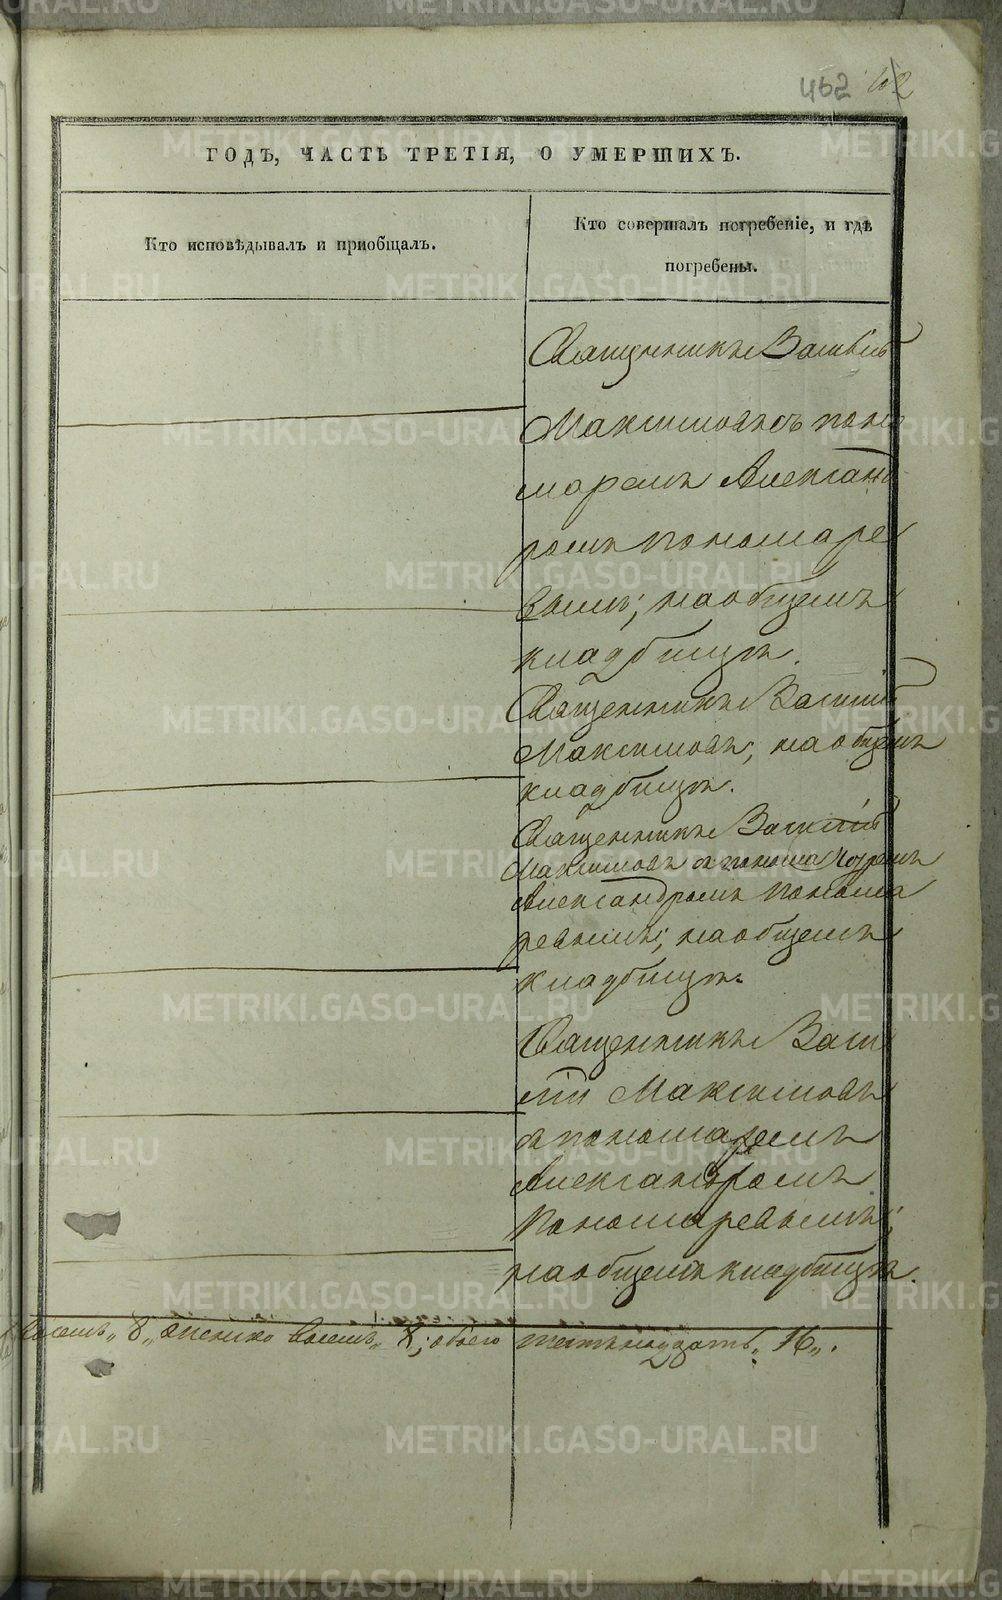 462 62
ГОДЪ, ЧАСТЬ ТРЕТІЯ, О УМЕРШИХЪ.
Кто исповѣдывалъ и пріобщалъ.
Кто совершалъ погребеніе, и гдѣ
погребены.
Священникъ Василій
Максимовъ съ поно
маремъ Александ
ромъ Пономаре
вымъ; на общемъ
кладбищѣ.
Священникъ Василій
Максимовъ, на общемъ
кладбищѣ.
Священникъ Василій
Максимовъ съ пономаремъ
Александромъ Понома
ревымъ; на общемъ
кладбищѣ.
Священникъ Васи
лій Максимовъ
съ пономаремъ
Александромъ
Пономаревымъ;
на общемъ кладбищѣ.
восемь „8„ женско восемь „8; обоего шестьнадцать „16„.
METRIKI.GASO-URAL.RU